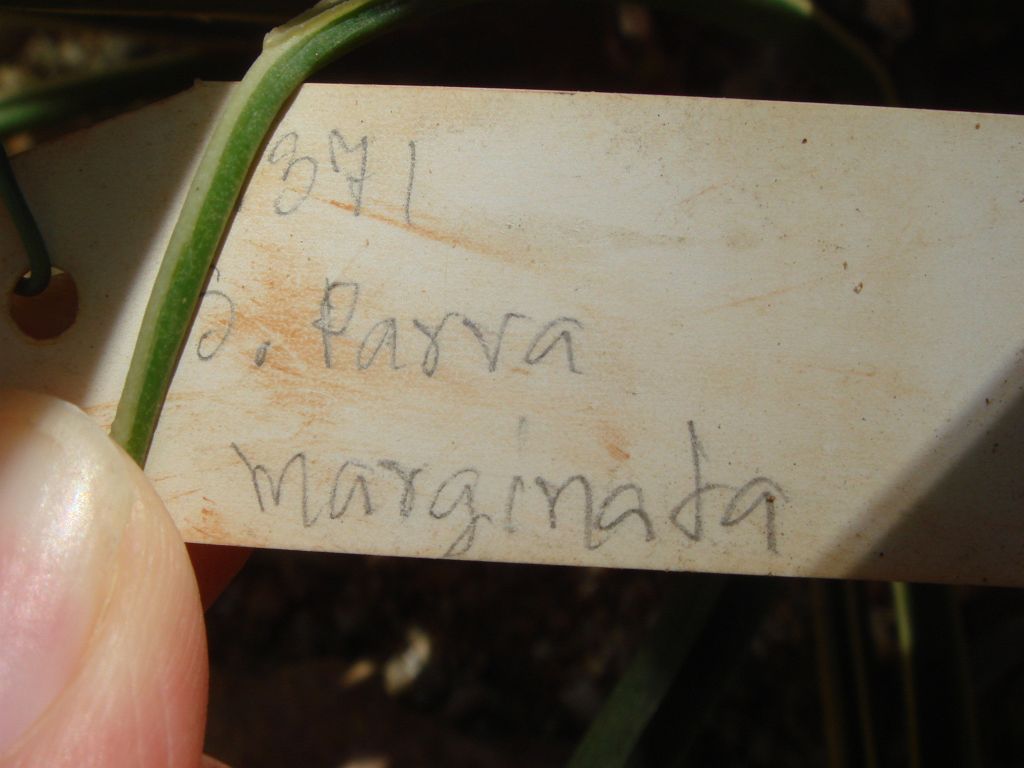 371
S. Parva
marginata